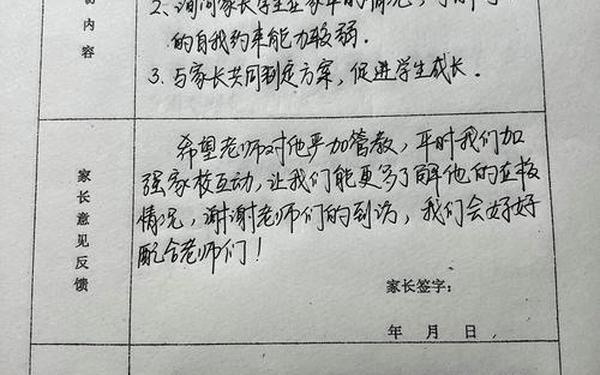 内容
2、询问家长学生在家中的情况,
的自我约束能力较弱.
3、与家长共同制定方案,促进学生成长.
家长意见反馈
希望老师对他严加管教,平时我们加
强家校互动,让我们能更多了解他的在校
情况,谢谢老师们的到访,我们会好好
配合老师们!
家长签字:
年 月 日